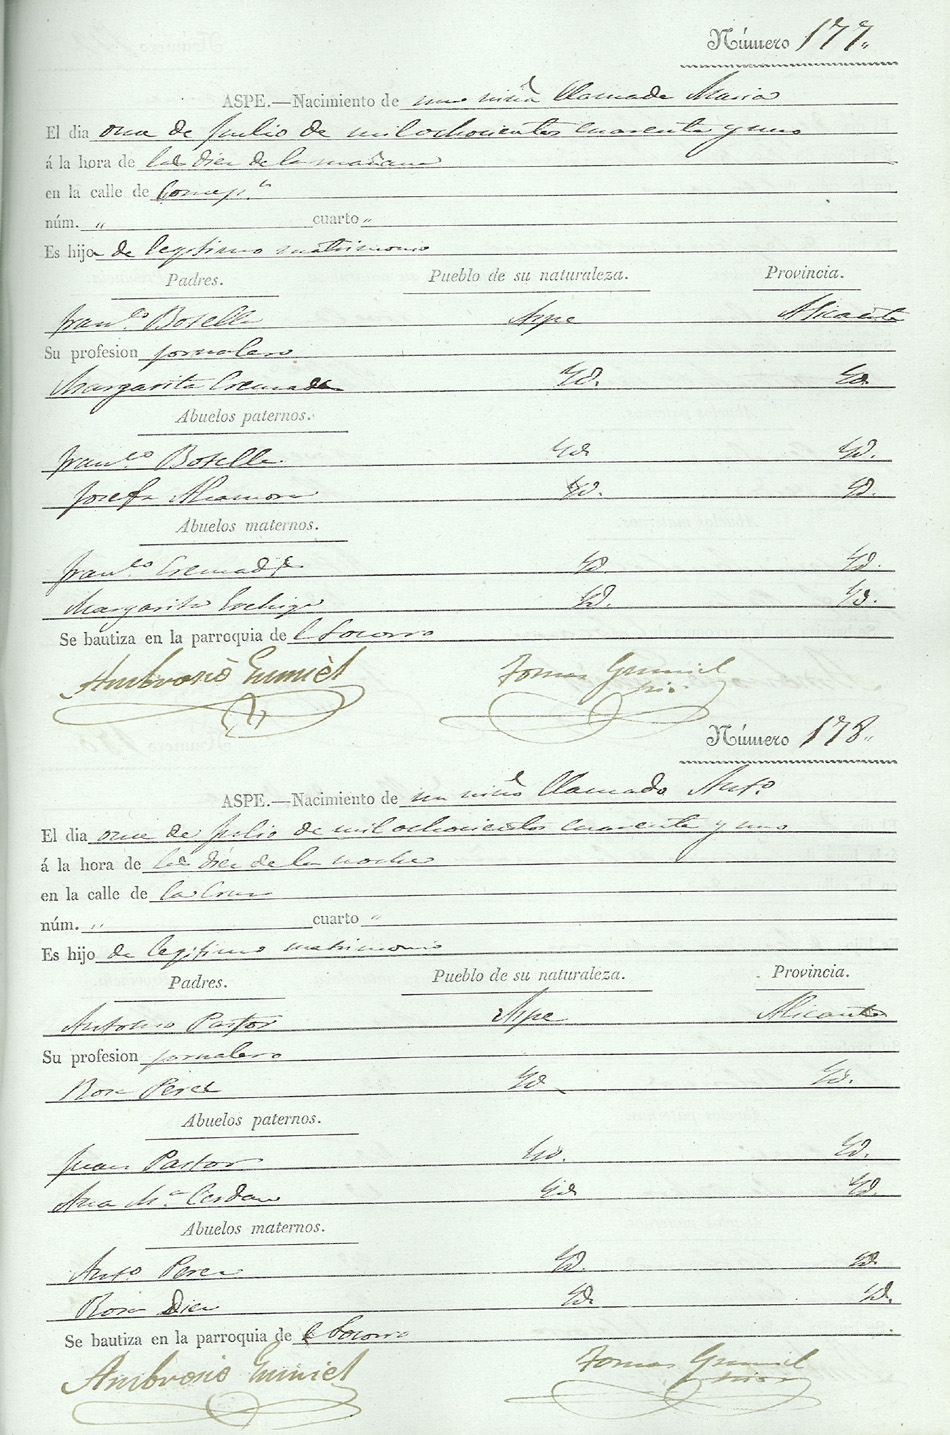 Número 177„
ASPE.—Nacimiento de una niña llamada Maria
El dia once de Julio de mil ochocientos cuarenta y uno
á la hora de las diez de la mañana
en la calle de Concep.ⁿ
núm. „ cuarto „
Es hija de legitimo matrimonio
Padres. Pueblo de su naturaleza. Provincia.
Fran.co Botella Aspe Alicante
Su profesion jornalero
Margarita Cremades Yd. Yd.
Abuelos paternos.
Fran.co Botella Yd. Yd.
Josefa Yd. Yd.
Abuelos maternos.
Fran.co Cremades Yd. Yd.
Margarita Yd. Yd.
Se bautiza en la parroquia de el Socorro
Ambrosio Tomas
Número 178„
ASPE.—Nacimiento de un niño llamado Ant.o
El dia once de Julio de mil ochocientos cuarenta y uno
á la hora de las diez de la noche
en la calle de la Cruz
núm. „ cuarto „
Es hijo de legitimo matrimonio
Padres. Pueblo de su naturaleza. Provincia.
Antonio Pastor Aspe Alicante
Su profesion jornalero
Rosa Perez Yd. Yd.
Abuelos paternos.
Juan Pastor Yd. Yd.
Ana M.a Cerdan Yd. Yd.
Abuelos maternos.
Ant.o Perez Yd. Yd.
Rosa Diez Yd. Yd.
Se bautiza en la parroquia de el Socorro
Ambrosio Tomas